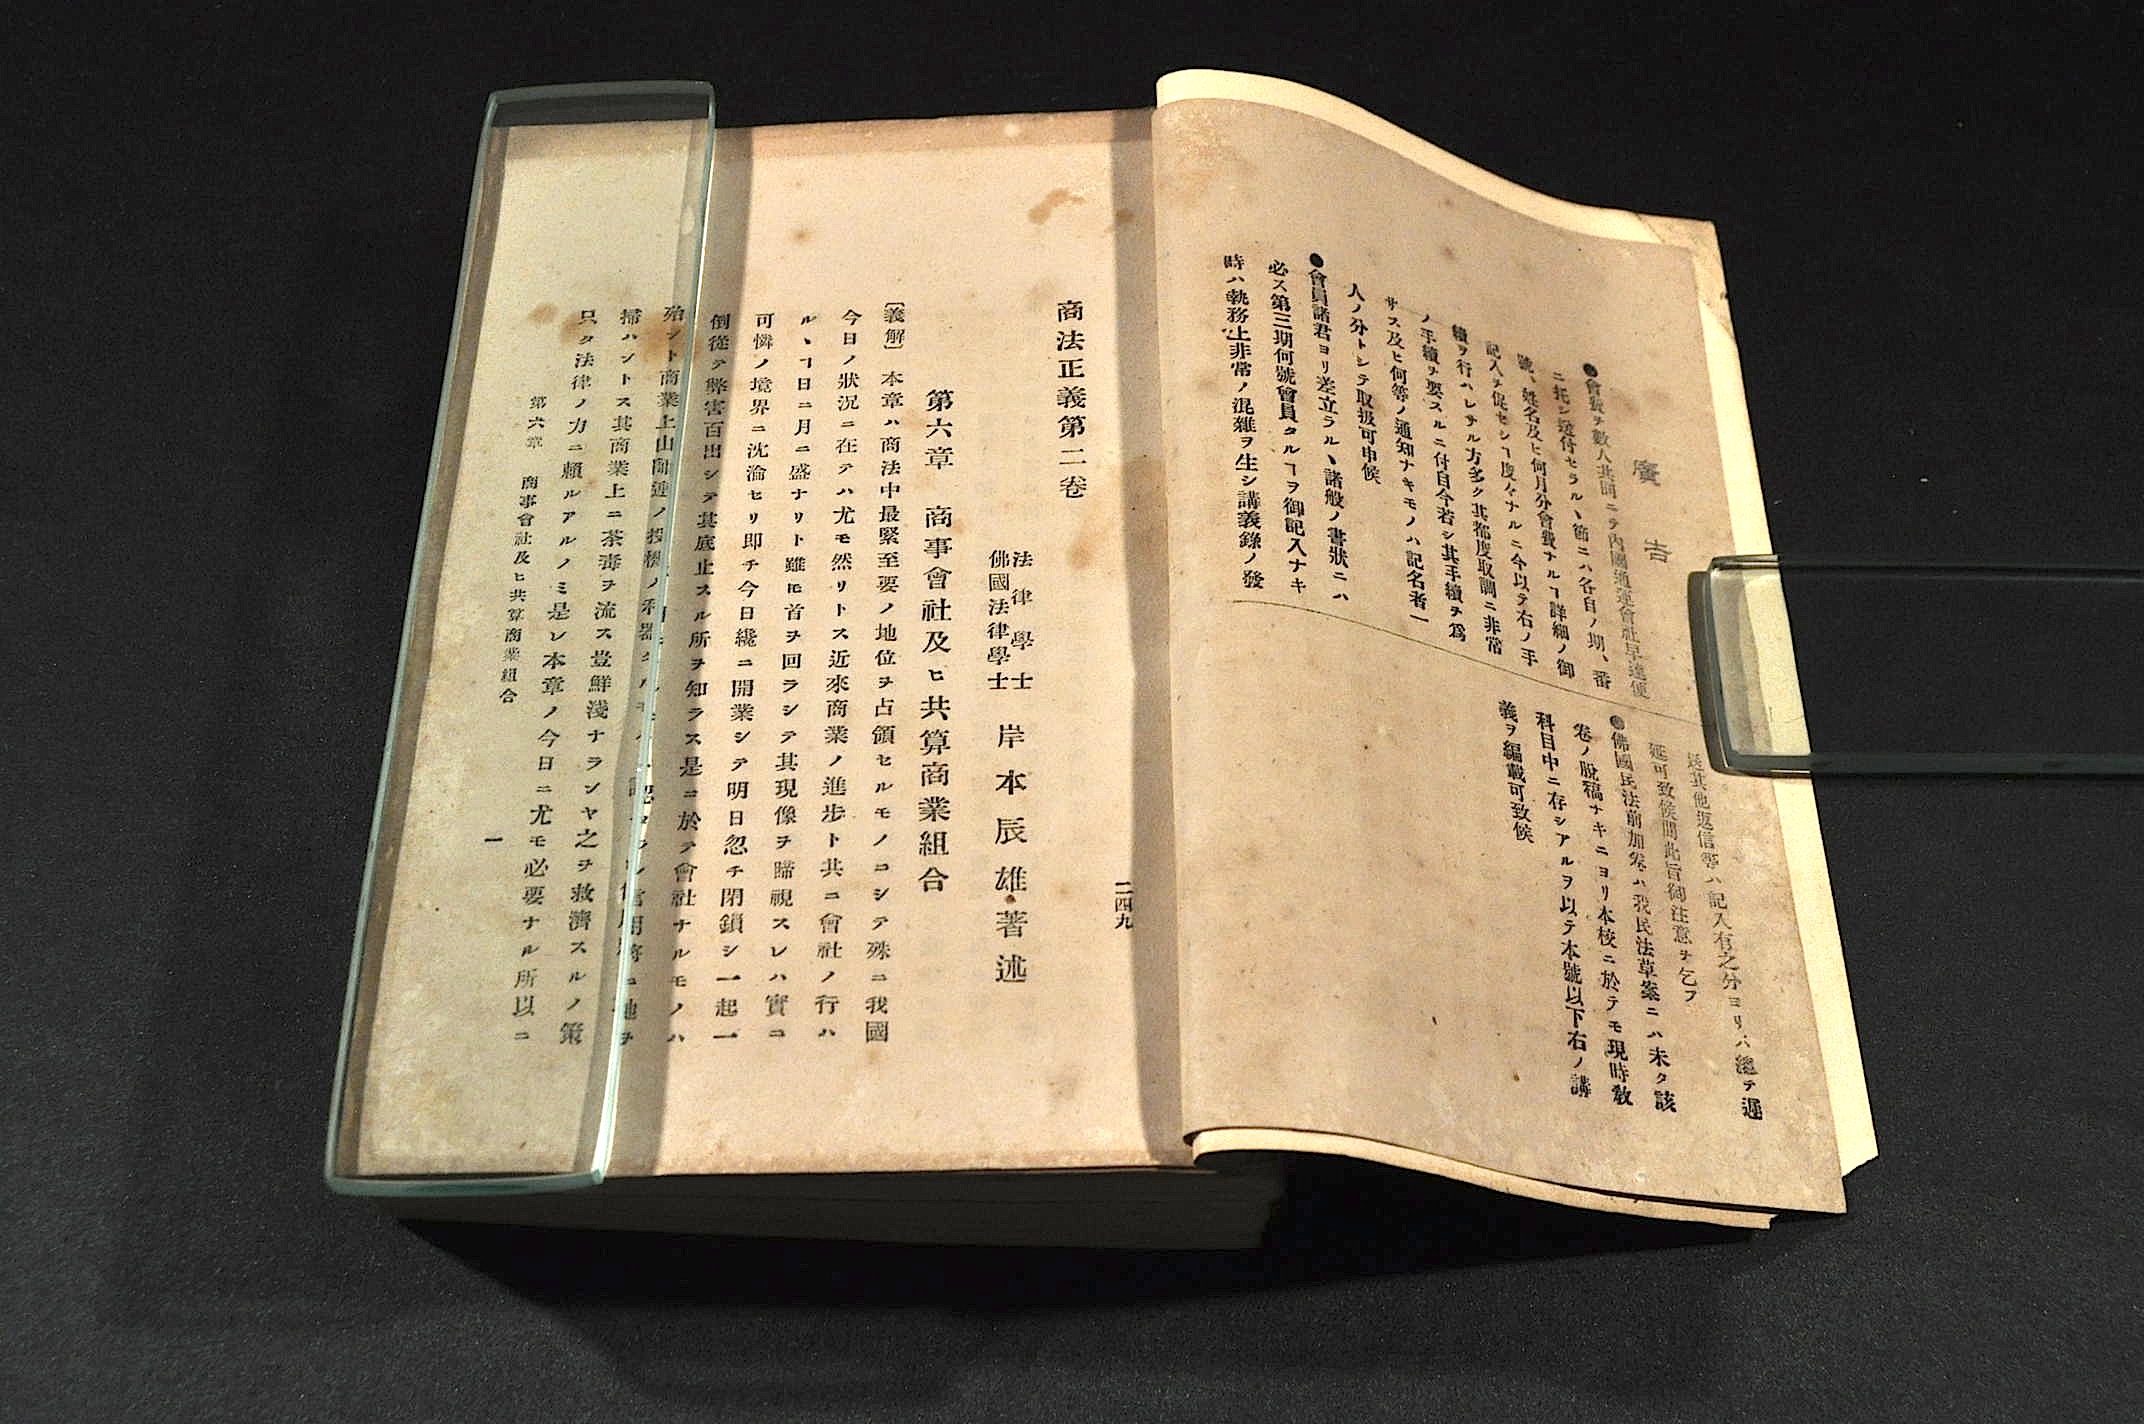 廣告
●會費ヲ數人共同ニテ內國通運會社早達便
ニ托シ送付セラルヽ節ニハ各自ノ期、番
號、姓名及ヒ何月分會費ナルヿ詳細ノ御
記入ヲ促セシヿ度々ナルニ今以テ右ノ手
續ヲ行ハレサル方多ク其都度取調ニ非常
ノ手續ヲ要スルニ付自今若シ其手續ヲ爲
サス及ヒ何等ノ通知ナキモノハ記名者一
人ノ分トシテ取扱可申候
●會員諸君ヨリ差立ラルヽ諸般ノ書狀ニハ
必ス第三期何號會員タルヿヲ御記入ナキ
時ハ執務上非常ノ混雜ヲ生シ講義錄ノ發
送其他返信等ハ記入有之分ヨリハ總テ遲
延可致候間此旨御注意ヲ乞フ
●佛國民法前加卷ハ我民法草案ニハ未タ該
卷ノ脫稿ナキニヨリ本校ニ於テモ現時敎
科目中ニ存シアルヲ以テ本號以下右ノ講
義ヲ編載可致候
二四九
商法正義第二卷
法律學士
佛國法律學士
岸本辰雄著述
第六章 商事會社及ヒ共算商業組合
〔義解〕本章ハ商法中最緊至要ノ地位ヲ占領セルモノコシテ殊ニ我國
今日ノ狀況ニ在テハ尤モ然リトス近來商業ノ進步ト共ニ會社ノ行ハ
ルヽヿ日ニ月ニ盛ナリト雖モ首ヲ回ラシテ其現像ヲ諦視スレハ實ニ
可憐ノ境界ニ沈淪セリ卽チ今日纔ニ開業シテ明日忽チ閉鎖シ一起一
倒從テ弊害百出シテ其底止スル所ヲ知ラス是ニ於テ會社ナルモノハ
殆ント商業上山師連ノ投機ノ利器 信用將ニ地ヲ
掃ハントス其商業上ニ荼毒ヲ流ス豈鮮淺ナランヤ之ヲ救濟スルノ策
只タ法律ノ力ニ賴ルアルノミ是レ本章ノ今日ニ尤モ必要ナル所以ニ
第六章 商事會社及ヒ共算商業組合
一